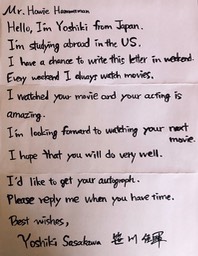 Mr. Howie Hammerman
Hello, I'm Yoshiki from Japan.
I'm studying abroad in the US.
I have a chance to write this letter in weekend.
Every weekend I always watch movies.
I watched your movie and your acting is
amazing.
I'm looking forward to watching your next
movie.
I hope that you will do very well.
I'd like to get your autograph.
Please reply me when you have time.
Best wishes,
Yoshiki Sasakawa 笹川